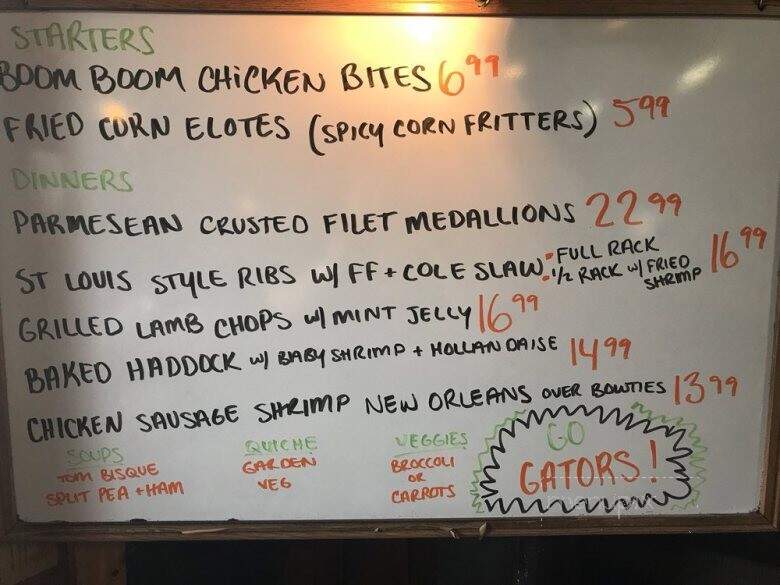 STARTERS
BOOM BOOM CHiCKEN BITES 6 99
FRIED CORN ELOTES (SPICY CORN FRITTERS) 5 99
DINNERS
PARMESEAN CRUSTED FILET MEDALLIONS 22 99
ST LOUIS STYLE RIBS W/ FF + COLE SLAW: FULL RACK
1/2 RACK W/ FRIED SHRIMP 16 99
GRILLED LAMB CHOPS W/ MINT JELLY 16 99
BAKED HADDOCK W/ BABY SHRIMP + HOLLANDAISE 14 99
CHICKEN SAUSAGE SHRIMP NEW ORLEANS OVER BOWTIES 13 99
SOUPS
TOM BISQUE
SPLIT PEA + HAM
QUICHE
GARDEN
VEG
VEGGIES
BROCCOLI
OR
CARROTS
GO
GATORS!